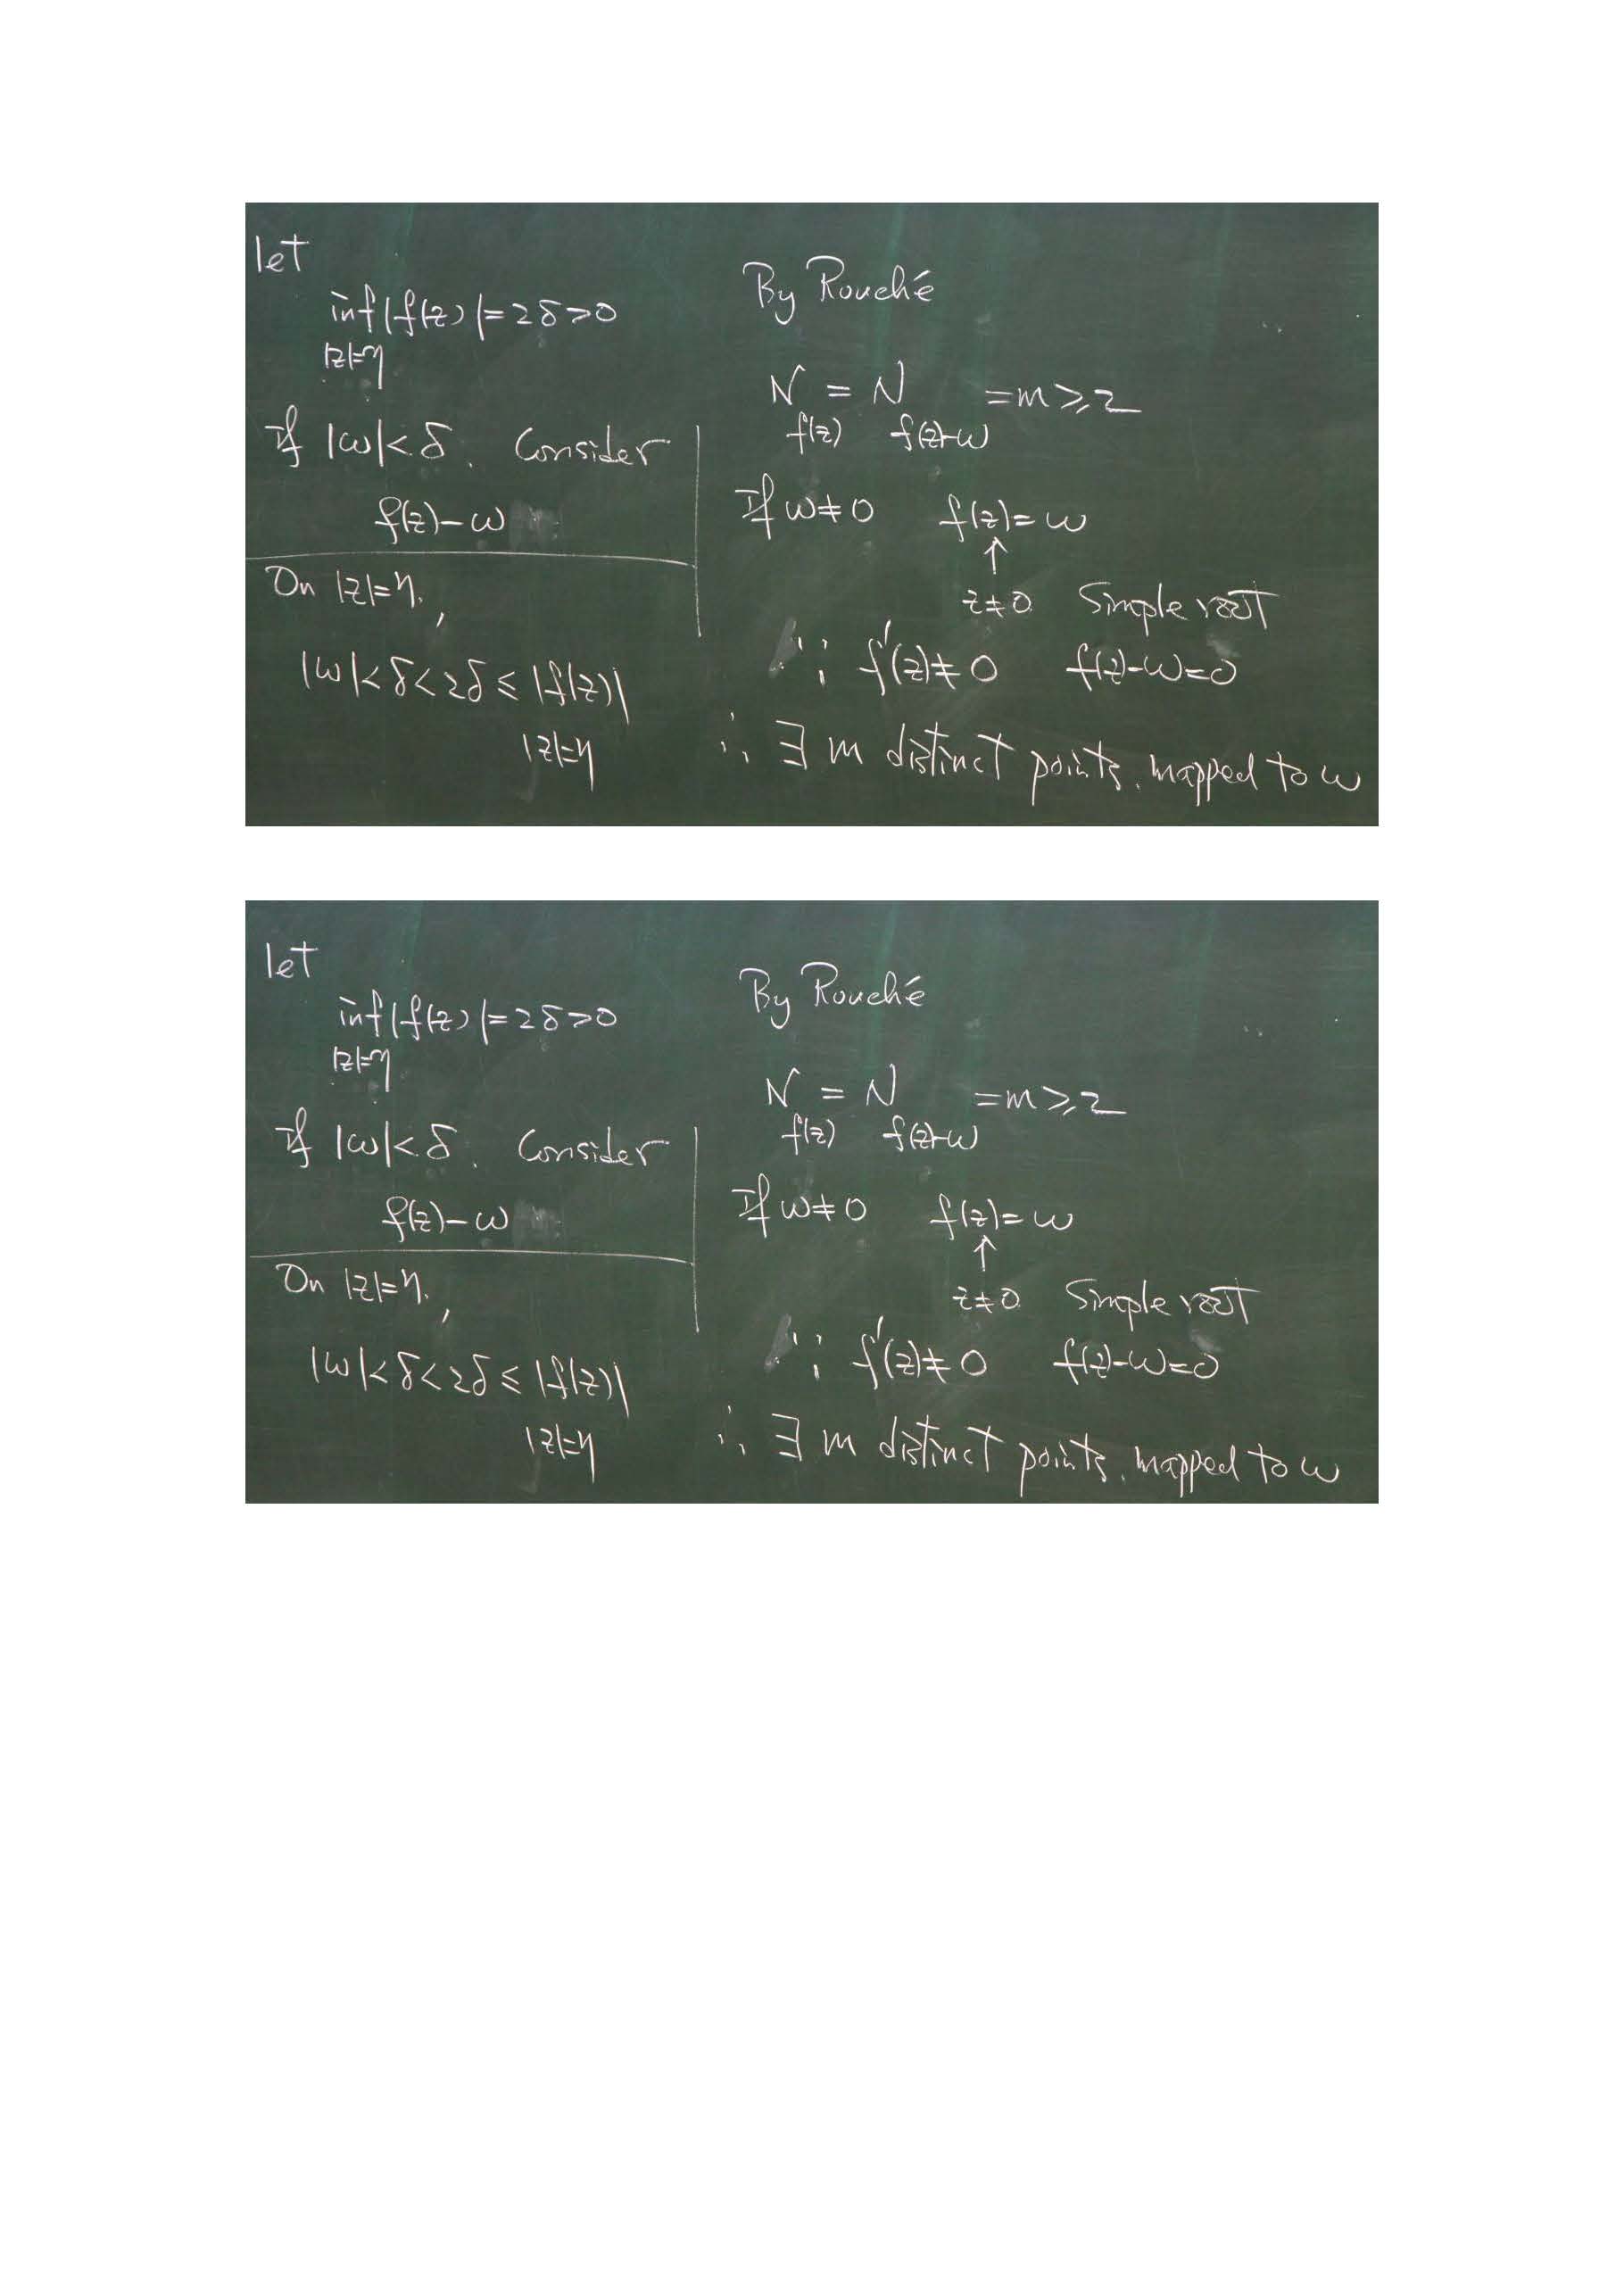 let
inf |f(z)| = 2δ > 0
|z|=η
If |ω| < δ. Consider
f(z) - ω
On |z|=η,
|ω| < δ < 2δ ≤ |f(z)|
|z|=η
By Rouché
N = N = m ≥ 2
f(z) f(z)-ω
If ω ≠ 0 f(z) = ω
↑
z ≠ 0 Simple root
∵ f'(z) ≠ 0 f(z)-ω=0
∴ ∃ m distinct points, mapped to ω
let
inf |f(z)| = 2δ > 0
|z|=η
If |ω| < δ. Consider
f(z) - ω
On |z|=η,
|ω| < δ < 2δ ≤ |f(z)|
|z|=η
By Rouché
N = N = m ≥ 2
f(z) f(z)-ω
If ω ≠ 0 f(z) = ω
↑
z ≠ 0 Simple root
∵ f'(z) ≠ 0 f(z)-ω=0
∴ ∃ m distinct points, mapped to ω